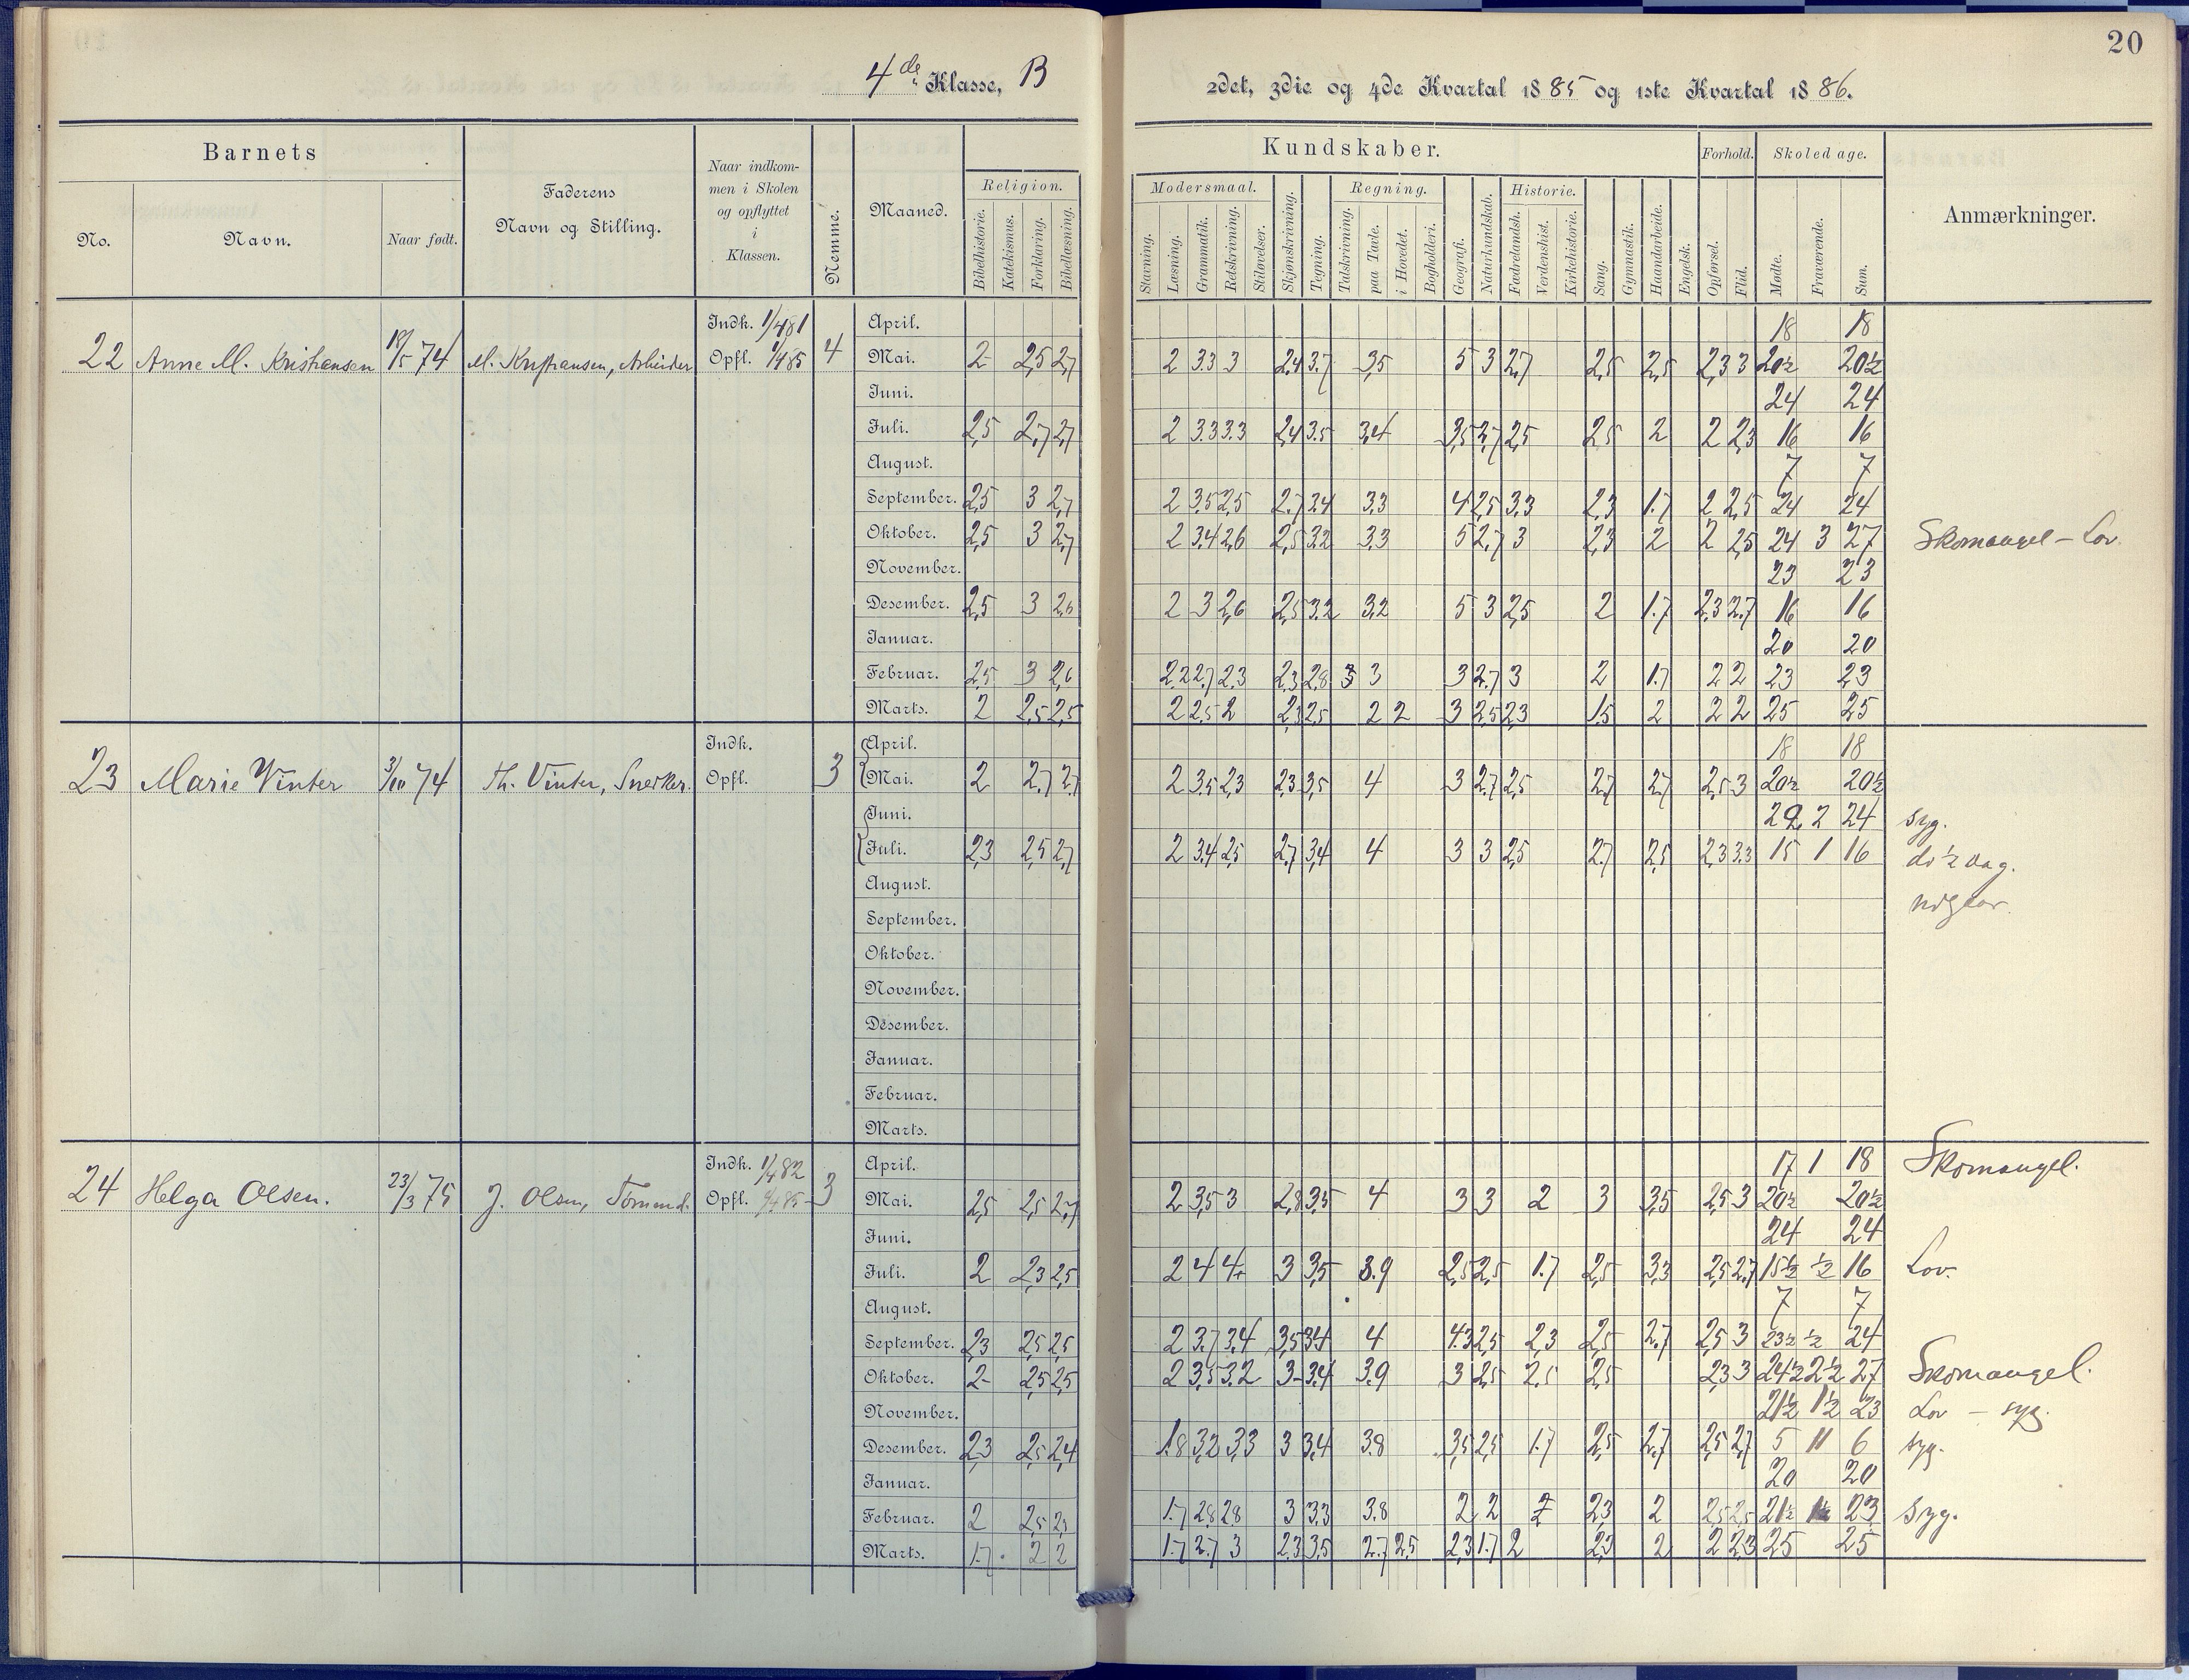 20
4de Klasse, B
2det, 3die og 4de Kvartal 1885 og 1ste Kvartal 1886.
Barnets
No.
Navn.
Naar født.
Faderens
Navn og Stilling.
Naar indkom-
men i Skolen
og opflyttet
i
Klassen.
Nemme.
Maaned.
Kundskaber.
Religion.
Bibelhistorie.
Katekismus.
Forklaring.
Bibellæsning.
Modersmaal.
Stavning.
Læsning.
Grammatik.
Retskrivning.
Stiløvelser.
Skjønskrivning.
Tegning.
Regning.
Talskrivning.
paa Tavle.
i Hovedet.
Bogholderi.
Geografi.
Naturkundskab.
Historie.
Fædrelandsh.
Verdenshist.
Kirkehistorie.
Sang.
Gymnastik.
Haandarbeide.
Engelsk.
Forhold.
Opførsel.
Flid.
Skoledage.
Mødte.
Fraværende.
Sum.
Anmærkninger.
22 Anne M. Kristiansen 18/5 74 M. Kristiansen, Arbeider Indk. 1/4 81 Opfl. 1/4 85 4
April. 18 18
Mai. 2 2,5 2,7 2 3.3 3 2,4 3.7 3,5 5 3 2,7 2,5 2,5 2,3 3 20½ 20½
Juni. 24 24
Juli. 2,5 2,7 2,7 2 3.3 3.3 2,4 3.5 3,4 3,5 2,7 2,5 2,5 2 2 2,3 16 16
August. 7 7
September. 2,5 3 2,7 2 3,5 2,5 2.7 3.4 3,3 4 2,5 3,3 2,3 1.7 2 2,5 24 24
Oktober. 2,5 3 2,7 2 3,4 2,6 2,5 3.2 3,3 5 2,7 3 2,3 2 2 2,5 24 3 27 Skomangel - Lov.
November. 23 23
Desember. 2,5 3 2,6 2 3 2,6 2,5 3.2 3,2 5 3 2,5 2 1.7 2,3 2.7 16 16
Januar. 20 20
Februar. 2,5 3 2,6 2.2 2.7 2.3 2,3 2,8 3 3 3 2.7 3 2 1.7 2 2 23 23
Marts. 2 2,5 2,5 2 2,5 2 2,3 2,5 2 2 3 2,5 2,3 1.5 2 2 2 25 25
23 Marie Winter 3/10 74 Th. Vinter, Snedker. Indk. Opfl. 3
April. 18 18
Mai. 2 2.7 2.7 2 3,5 2,3 2,3 3,5 4 3 2.7 2,5 2,7 2,7 2,5 3 20½ 20½
Juni. 22 2 24 syg.
Juli. 2,3 2,5 2,7 2 3.4 2,5 2.7 3,4 4 3 3 2,5 2,7 2,5 2,3 3.3 15 1 16 do ½ dag.
August.
September.
Oktober.
November.
Desember.
Januar.
Februar.
Marts.
24 Helga Olsen. 23/3 75 J. Olsen, Tømmd. Indk. 1/4 82 Opfl. 1/4 85 3
April. 17 1 18 Skomangel.
Mai. 2,5 2,5 2,7 2 3,5 3 2,8 3,5 4 3 3 2 3 3,5 2,5 3 20½ 20½
Juni. 24 24
Juli. 2 2,3 2,5 2 4 4+ 3 3,5 3.9 2,5 2,5 1.7 2,5 3,3 2,5 2,7 15½ ½ 16 Lov.
August. 7 7
September. 2,3 2,5 2,5 2 3.7 3.4 3,5 3.4 4 4.3 2,5 2,3 2,5 2.7 2,5 3 23½ ½ 24
Oktober. 2 2,5 2,5 2 3,5 3.2 3 3.4 3.9 3 2,5 2,5 2,5 2,3 3 24½ 2½ 27 Skomangel.
November. 21½ 1½ 23 Lov - syg.
Desember. 2,3 2,5 2,4 1.8 3,2 3,3 3 3,4 3.8 3,5 2,5 1.7 2,5 2,7 2,5 2,7 5 11 6 syg.
Januar. 20 20
Februar. 2 2,5 2,5 1.7 2,8 2,8 3 3.3 3.8 2 2 2 2,3 2 2,5 2,5 21½ 1½ 23 Syg.
Marts. 1.7 2 2 1.7 2.7 3 2.3 3,5 2.7 2,5 2,3 1.7 2 2,3 2 2 2,3 25 25